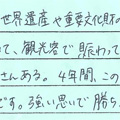 世界遺産や重要文化財の
て、観光客で賑わって
さんある。4年間、この
です。強い思いで勝ち